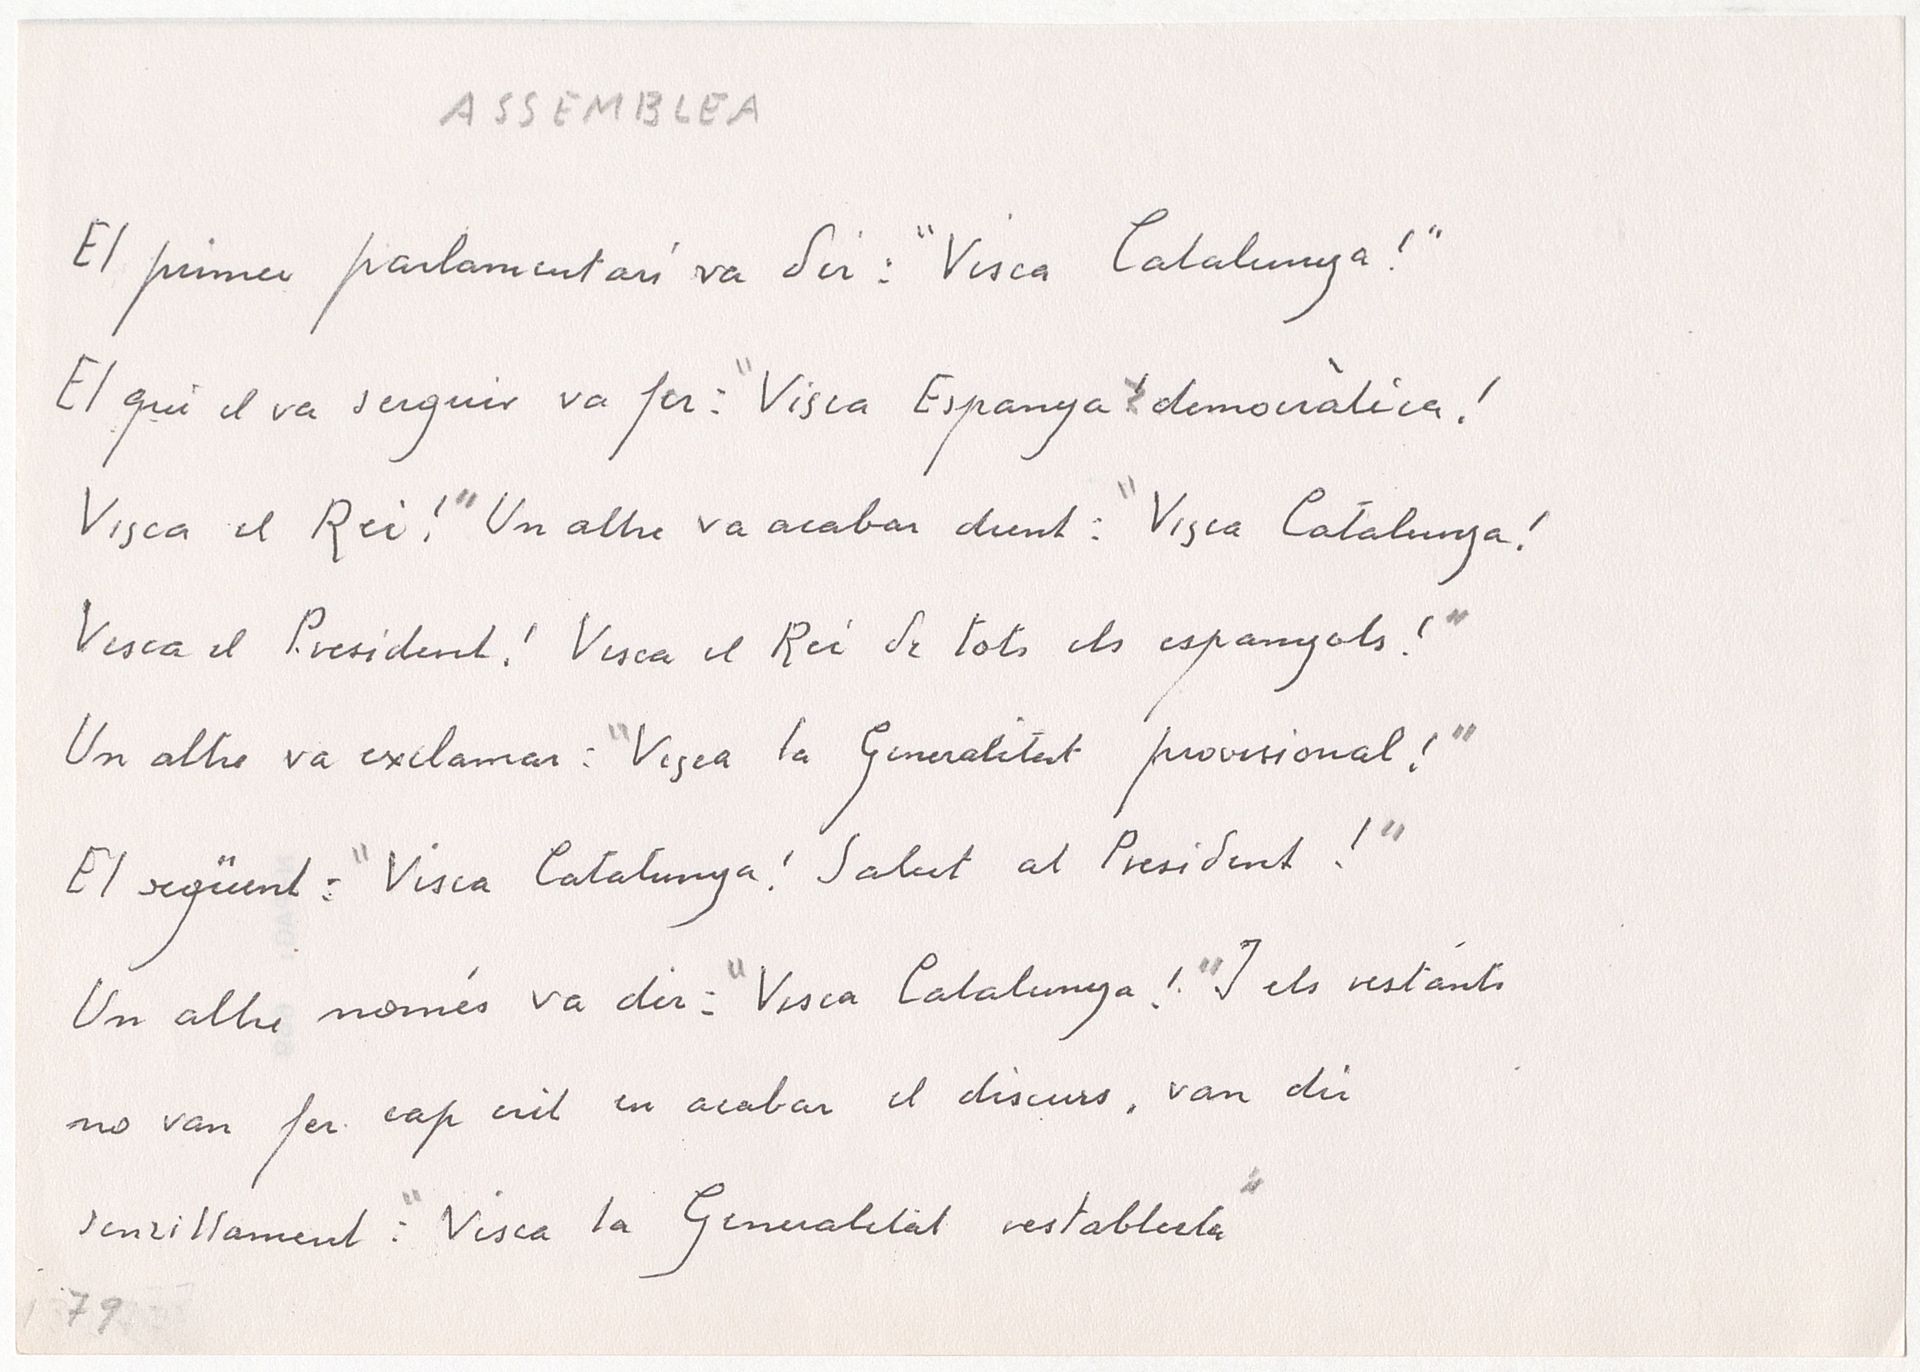 ASSEMBLEA
El primer parlamentari va dir: "Visca Catalunya!"
El qui el va serguir va fer: "Visca Espanya democràtica!
Visca el Rei!" Un altre va acabar dient: "Visca Catalunya!
Visca el President! Visca el Rei de tots els espanyols!"
Un altre va exclamar: "Visca la Generalitat provisional!"
El següent: "Visca Catalunya! Salut al President!"
Un altre només va dir: "Visca Catalunya!" I els restants
no van fer cap crit en acabar el discurs, van dir
senzillament: "Visca la Generalitat restablerta"
79